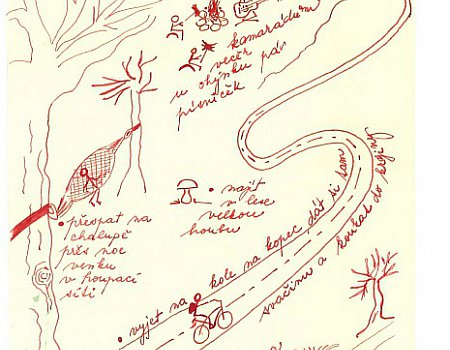 kamarádům
večer
u ohýnku pár
písniček
• najít
v lese
velkou
houbu
• přespat na
chalupě
přes noc
venku
v houpací
síti
• vyjet na kole na kopec dát si tam
svačinu a koukat do krajiny